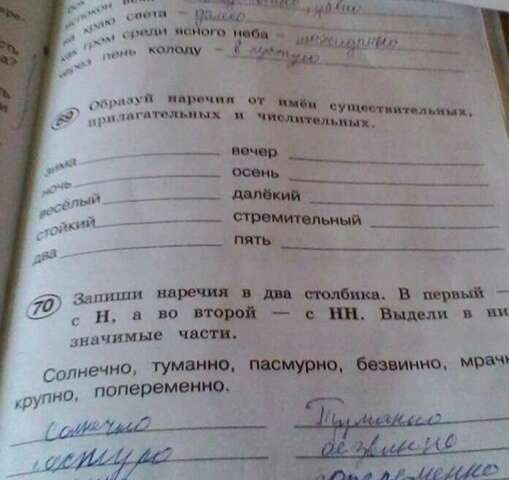 на краю света – далеко
как гром среди ясного неба –
через пень колоду –
69 Образуй наречия от имён существительных,
прилагательных и числительных.
зима вечер
ночь осень
весёлый далёкий
стойкий стремительный
два пять
70 Запиши наречия в два столбика. В первый –
с Н, а во второй – с НН. Выдели в
значимые части.
Солнечно, туманно, пасмурно, безвинно,
крупно, попеременно.
Солнечно Туманно
безвинно
попеременно